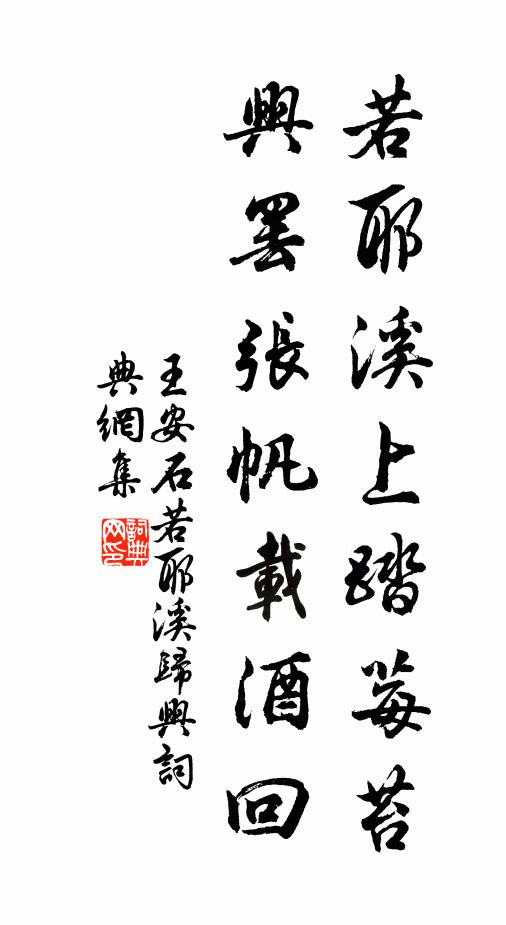 若耶溪上踏莓苔
興罷張帆載酒回
王安石若耶溪歸興詞
典網集
詞典网印